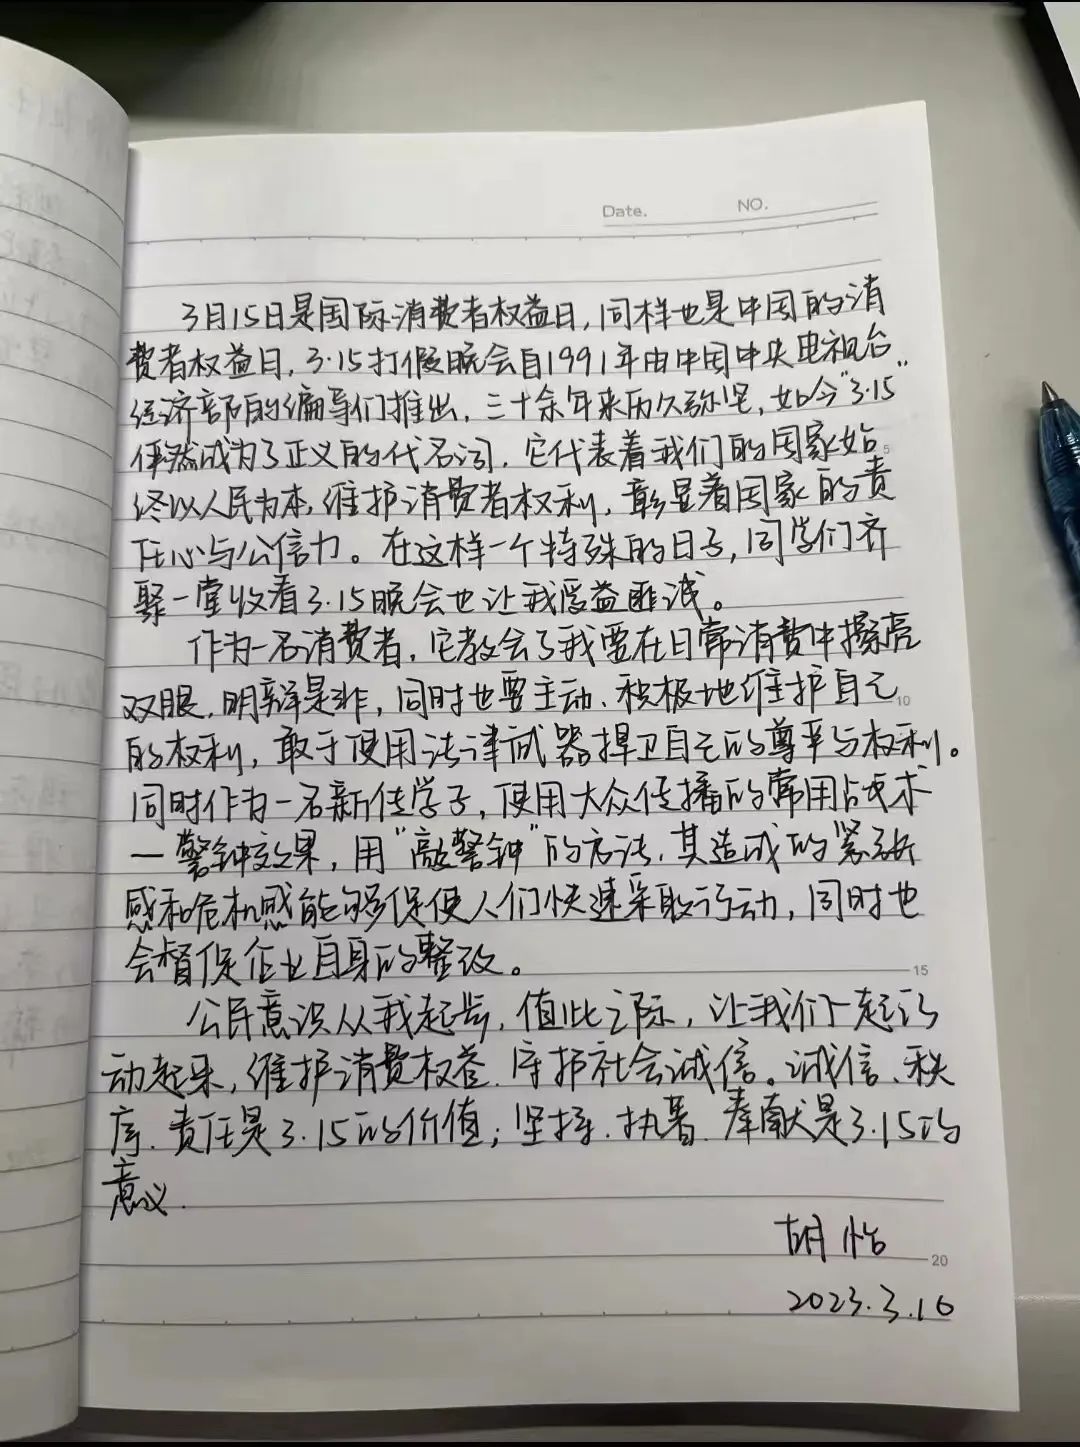 Date.
NO.
3月15日是国际消费者权益日,同样也是中国的消
费者权益日,3·15打假晚会自1991年由中国中央电视台
经济部的编导们推出,三十余年来历久弥坚,如今"3·15"
俨然成为了正义的代名词,它代表着我们的国家始
5
终以人民为本,维护消费者权利,彰显着国家的责
任心与公信力。在这样一个特殊的日子,同学们齐
聚一堂收看3.15晚会也让我受益匪浅。
作为一名消费者,它教会了我要在日常消费中擦亮
双眼,明辩是非,同时也要主动、积极地维护自己
10
的权利,敢于使用法律武器捍卫自己的尊严与权利。
同时作为一名新传学子,使用大众传播的常用战术
—警钟效果,用"敲警钟"的方法,其造成的紧张
感和危机感能够促使人们快速采取行动,同时也
会督促企业自身的整改。
15
公民意识从我起步,值此之际,让我们一起行
动起来,维护消费权益,守护社会诚信。诚信、秩
序、责任是3.15的价值;坚持、执着、奉献是3.15的
意义.
胡怡
20
2023.3.16